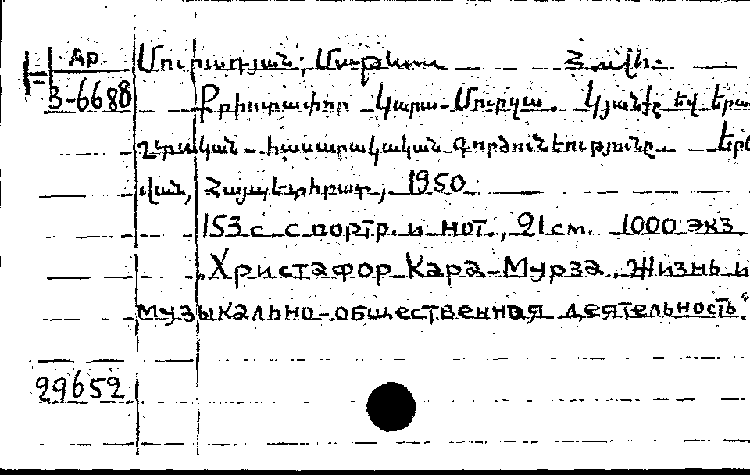 Ар
Մուրադյան, Մաթևոս
3-6688
Քրիստափոր Կարա-Մուրզա. Կյանքը եվ երա
շտական-հասարակական գործունեությունը. Երե
վան, Հայպետհրատ, 1950
153 с. с портр. и нот., 21 см. 1000 экз
„Христафор Кара-Мурза. Жизнь и
музыкально-общественная деятельность“.
29652